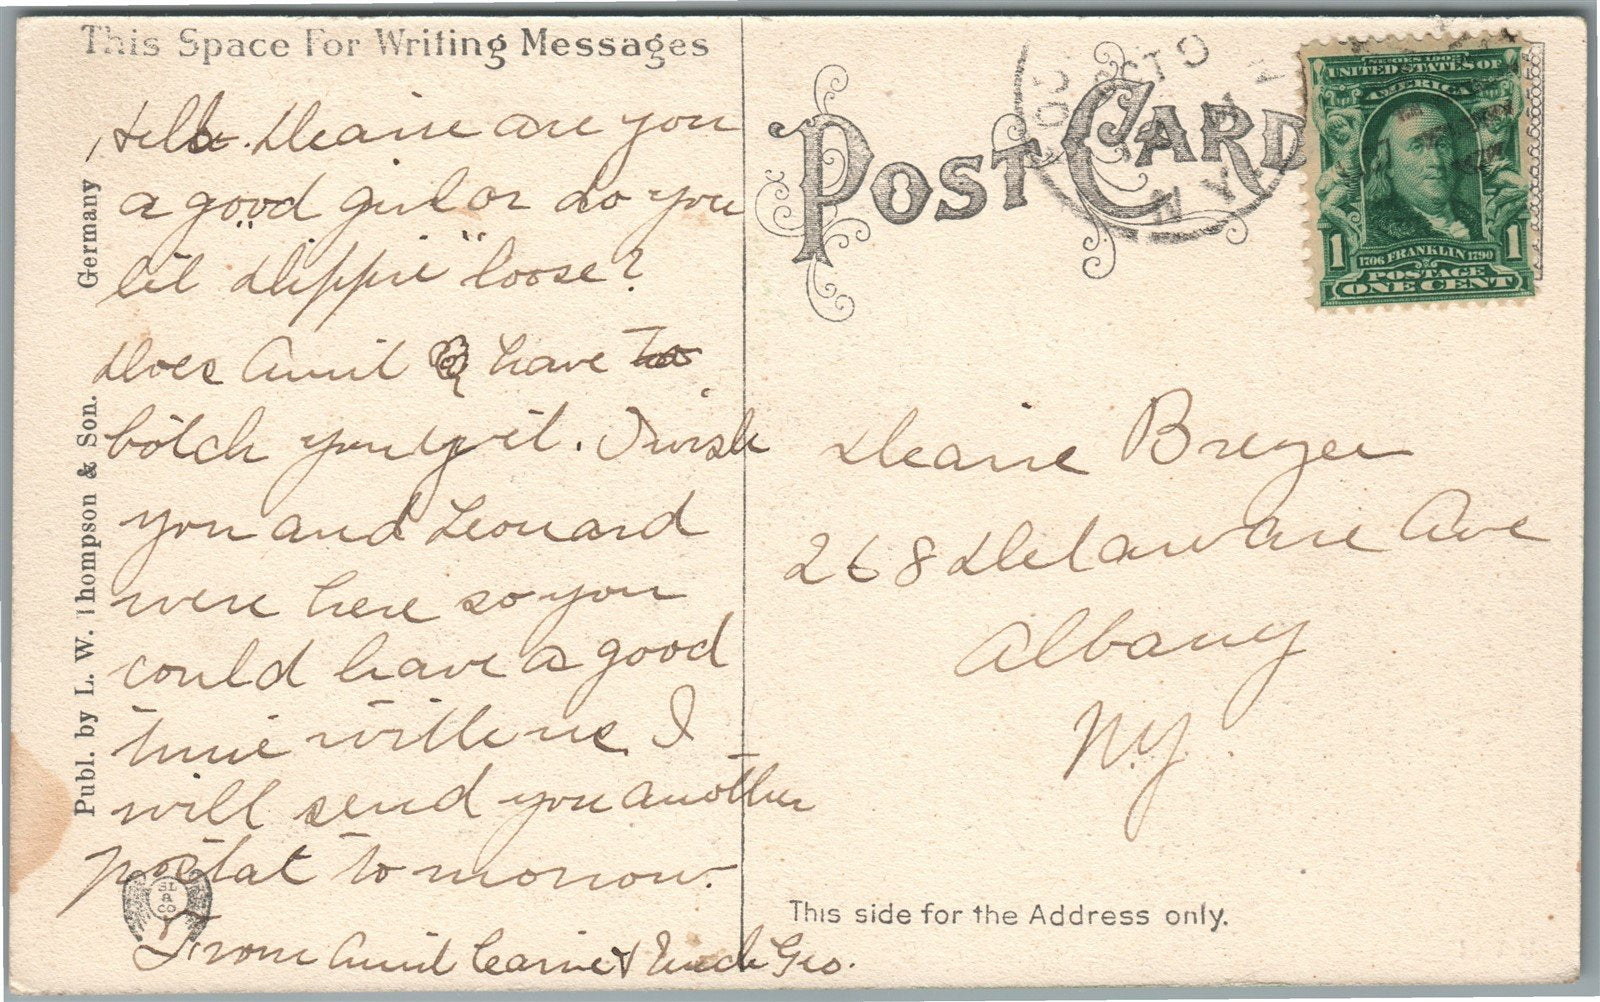 This Space For Writing Messages
Hello Dearie are you
a good girl or do you
lit "dippie" loose?
Does Aunt have
botch you yet. I wish
you and Leonard
were here so you
could have a good
time with us. I
will send you another
postal to morrow.
From Aunt Carrie & Uncle Geo.
Publ. by L. W. Thompson & Son. Germany
SL
&
Co
POST CARD
N.Y.
SERIES 1902
UNITED STATES OF
AMERICA
1 1706 FRANKLIN 1790 1
POSTAGE
ONE CENT
Dearie Breyer
268 Delaware Ave
Albany
N.Y.
This side for the Address only.